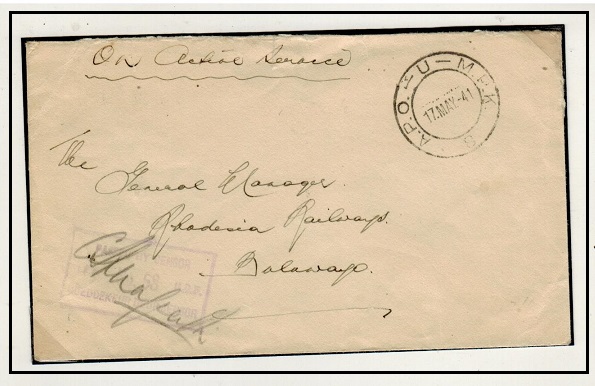 On Active Service
A.P.O. — U — M.P.K.
17.MAY.41
The
General Manager.
Rhodesia Railways.
Bulawayo.